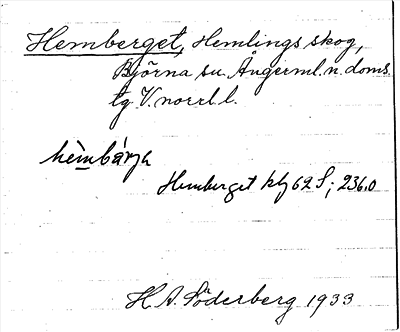 Hemberget, Hemlings skog,
Björna sn. Ångerml. n. doms.
tg V. norrl. l.
hèmbárjə
Hemberget kbg 62 S; 236.0
H. A. Söderberg 1933